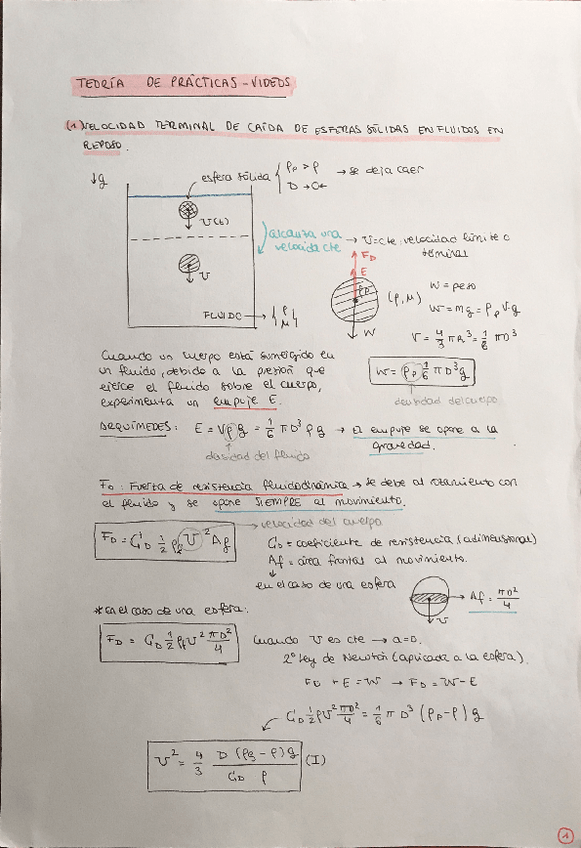 TEORÍA DE PRÁCTICAS - VIDEOS
(1) VELOCIDAD TERMINAL DE CAÍDA DE ESFERAS SÓLIDAS EN FLUIDOS EN
REPOSO.
↓g
esfera sólida { ρp > ρ → se deja caer
D → 0←
v(t)
alcanza una → v=cte: velocidad límite o
velocida cte terminal
v
FD
E
ρp (ρ,μ)
W
W = peso
W = mg = ρp V·g
V = 4/3 π R³ = 1/6 π D³
FLUIDO → { ρ μ }
W = ρp 1/6 π D³ g
densidad del cuerpo
Cuando un cuerpo está sumergido en
un fluido, debido a la presión que
ejerce el fluido sobre el cuerpo,
experimenta un empuje E.
ARQUÍMEDES: E = Vρg = 1/6 π D³ ρg → El empuje se opone a la
gravedad.
densidad del fluido
FD: Fuerza de resistencia fluidodinámica → se debe al rozamiento con
el fluido y se opone SIEMPRE al movimiento.
velocidad del cuerpo
FD = CD 1/2 ρf v² Af
CD = coeficiente de resistencia (adimensional)
Af = área frontal al movimiento.
en el caso de una esfera
→ Af = πD²/4
v
* En el caso de una esfera:
FD = CD 1/2 ρf v² πD²/4
Cuando v es cte → a=0.
2º Ley de Newton (aplicada a la esfera).
FD + E = W → FD = W - E
CD 1/2 ρv² πD²/4 = 1/6 π D³ (ρp - ρ) g
v² = 4/3 D (ρs - ρ) g / CD ρ (I)
1